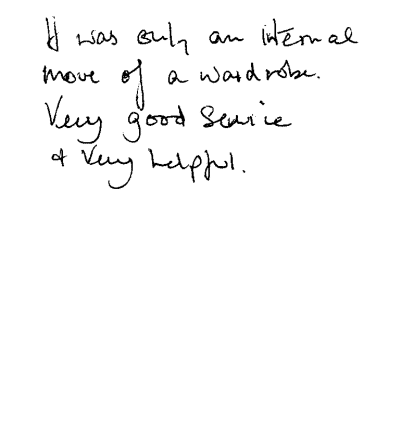 It was only an internal
move of a wardrobe.
Very good service
& very helpful.